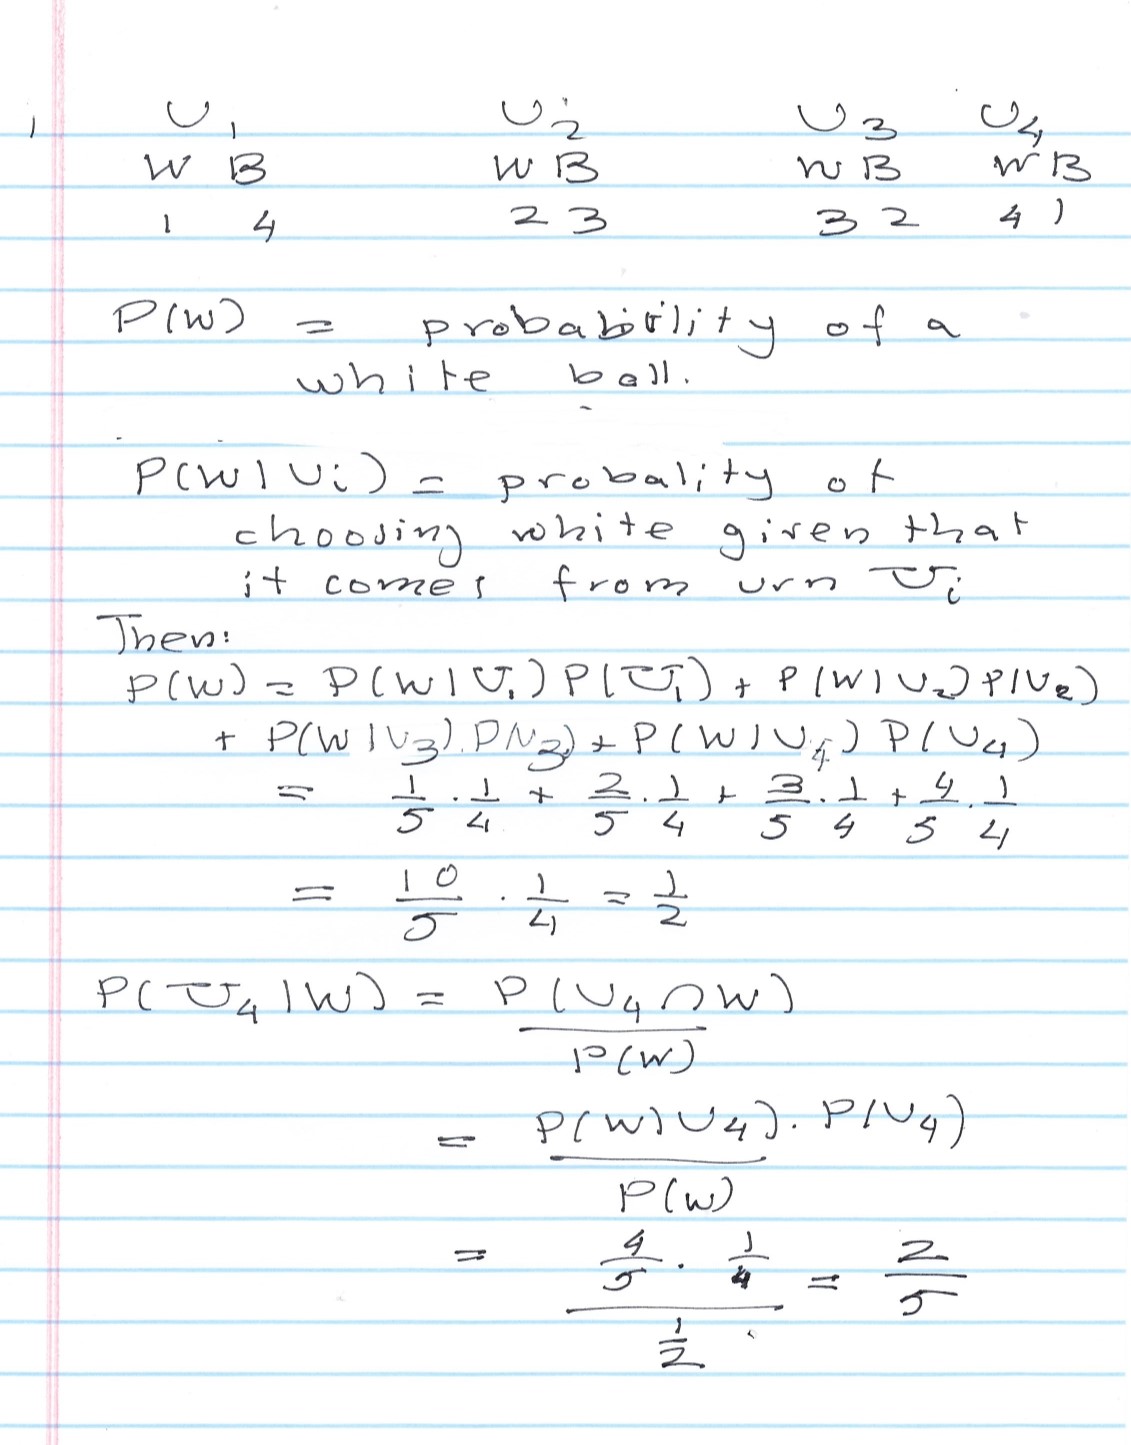 1 U₁ U₂ U₃ U₄
W B W B W B W B
1 4 2 3 3 2 4 1
P(W) = probability of a
white ball.
P(W|Ui) = probality of
choosing white given that
it comes from urn Ui
Then:
P(W) = P(W|U₁) P(U₁) + P(W|U₂) P(U₂)
+ P(W|U₃). P(U₃) + P(W|U₄) P(U₄)
= 1/5 · 1/4 + 2/5 · 1/4 + 3/5 · 1/4 + 4/5 · 1/4
= 10/5 · 1/4 = 1/2
P(U₄|W) = P(U₄∩W)
P(W)
= P(W|U₄). P(U₄)
P(W)
= 4/5 · 1/4 = 2/5
1/2